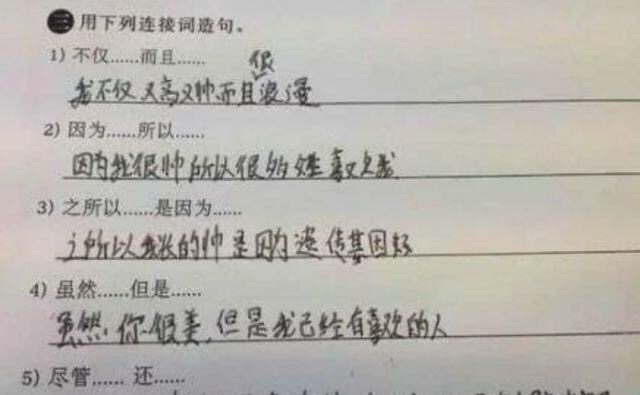 三 用下列连接词造句。
1) 不仅……而且……
我不仅又高又帅而且很浪漫
2) 因为……所以……
因为我很帅所以很多女生喜欢我
3) 之所以……是因为……
之所以我长的帅是因为遗传基因好
4) 虽然……但是……
虽然,你很美,但是我已经有喜欢的人
5) 尽管……还……